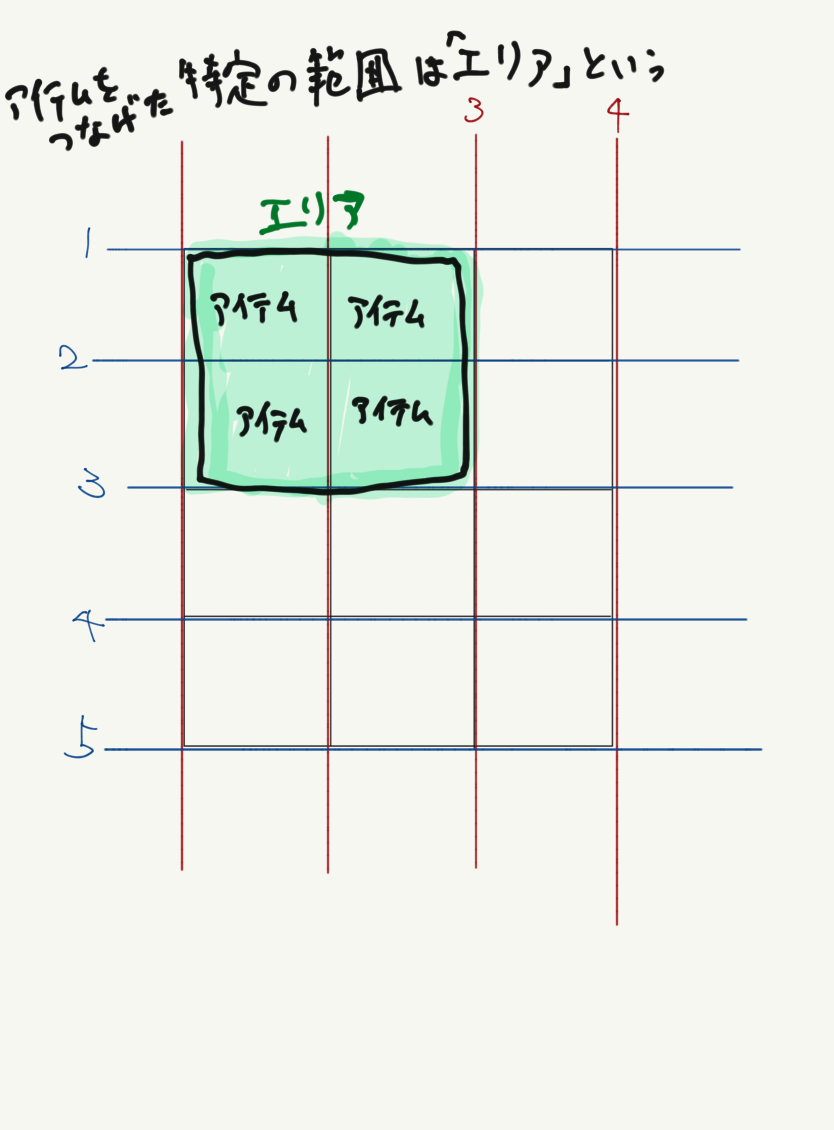 アイテムを
つなげた
特定の範囲は「エリア」という
3
4
エリア
1
アイテム アイテム
2
アイテム アイテム
3
4
5